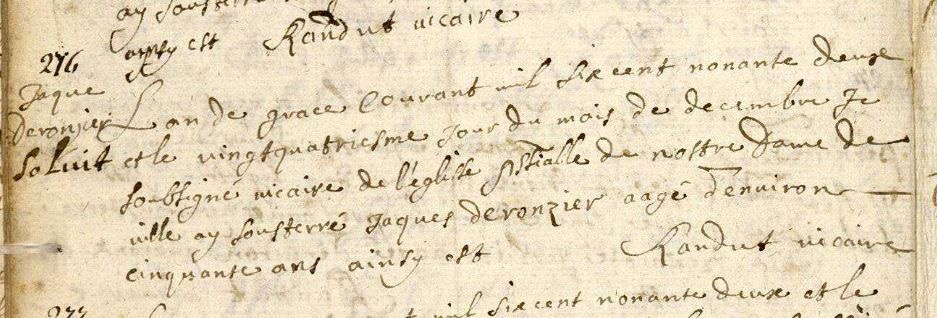 ay sousterré
ainsy est Randut vicaire
276
Jaque
Deronzier
Soluit
L an de grace Courant mil six cent nonante deux
et le vingtquatriesme jour du mois de decembre Je
soubsigné vicaire de l'eglisse pstialle de nostre Dame de
ville ay sousterré Jaques deronzier aagé d'environ
cinquante ans ainsy est Randut vicaire
277
mil six cent nonante deux et le